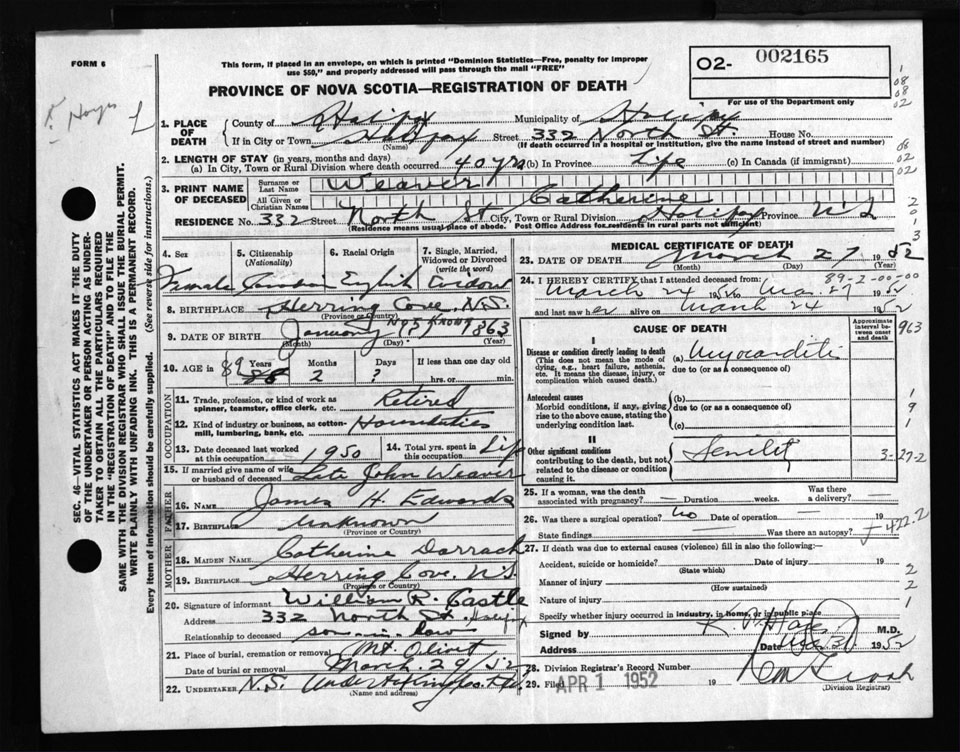 FORM 6
This form, if placed in an envelope, on which is printed "Dominion Statistics—Free, penalty for improper
use $50," and properly addressed will pass through the mail "FREE"
PROVINCE OF NOVA SCOTIA—REGISTRATION OF DEATH
O2- 002165
For use of the Department only
1. PLACE OF DEATH
County of Halifax Municipality of Halifax
If in City or Town Halifax Street 332 North St House No.
(Name) (If death occurred in a hospital or institution, give the name instead of street and number)
2. LENGTH OF STAY (in years, months and days)
(a) In City, Town or Rural Division where death occurred 40 yrs (b) In Province Life (c) In Canada (if immigrant)
3. PRINT NAME OF DECEASED
Surname or Last Name Weaver
All Given or Christian Names Catherine
RESIDENCE No. 332 Street North St City, Town or Rural Division Halifax Province N.S.
(Residence means usual place of abode. Post Office Address for residents in rural parts not sufficient)
4. Sex Female
5. Citizenship (Nationality) Canadian
6. Racial Origin English
7. Single, Married, Widowed or Divorced (write the word) Widow
8. BIRTHPLACE Herring Cove, N.S.
(Province or Country)
9. DATE OF BIRTH January Not Known 1863
(Month) (Day) (Year)
10. AGE in 89 88 Years Months 2 Days ? If less than one day
hrs. or min.
OCCUPATION
11. Trade, profession or kind of work as spinner, teamster, office clerk, etc. Retired
12. Kind of industry or business, as cotton-mill, lumbering, bank, etc. Household duties
13. Date deceased last worked at this occupation 1950
14. Total yrs. spent in this occupation Life
15. If married give name of wife or husband of deceased Late John Weaver
FATHER
16. NAME James H. Edwards
17. BIRTHPLACE Unknown
(Province or Country)
MOTHER
18. MAIDEN NAME Catherine Darrach
19. BIRTHPLACE Herring Cove, N.S.
(Province or Country)
20. Signature of informant William R. Castle
Address 332 North St. Halifax
Relationship to deceased son-in-law
21. Place of burial, cremation or removal Mt. Olivet
Date of burial or removal March 29/52
22. UNDERTAKER N.S. Undertaking Co. Ltd.
(Name and address)
MEDICAL CERTIFICATE OF DEATH
23. DATE OF DEATH March 27 1952
(Month) (Day) (Year)
89-2-00-00
24. I HEREBY CERTIFY that I attended deceased from:
March 24 1952 to Mar. 27 1952
and last saw her alive on March 24 1952
CAUSE OF DEATH
Approximate interval between onset and death
I
Disease or condition directly leading to death (a) Myocarditis
(This does not mean the mode of dying, e.g., heart failure, asthenia, etc. It means the disease, injury, or complication which caused death.)
due to (or as a consequence of)
Antecedent causes
Morbid conditions, if any, giving rise to the above cause, stating the underlying condition last.
(b)
due to (or as a consequence of)
(c)
II
Other significant conditions contributing to the death, but not related to the disease or condition causing it.
Senility
25. If a woman, was the death associated with pregnancy? — Duration weeks. Was there a delivery? —
26. Was there a surgical operation? No Date of operation — 19
State findings Was there an autopsy?
27. If death was due to external causes (violence) fill in also the following:—
Accident, suicide or homicide? Date of injury 19
(State which)
Manner of injury
(How sustained)
Nature of injury
Specify whether injury occurred in industry, in home, or in public place
Signed by M.D.
Address Date Mar 31 1952
28. Division Registrar's Record Number
29. Filed APR 1 1952 19
(Division Registrar)
SEC. 46—VITAL STATISTICS ACT MAKES IT THE DUTY
OF THE UNDERTAKER OR PERSON ACTING AS UNDER-
TAKER TO OBTAIN ALL THE PARTICULARS REQUIRED
IN THE "REGISTRATION OF DEATH" AND TO FILE THE
SAME WITH THE DIVISION REGISTRAR WHO SHALL ISSUE THE BURIAL PERMIT.
WRITE PLAINLY WITH UNFADING INK. THIS IS A PERMANENT RECORD.
Every item of information should be carefully supplied. (See reverse side for instructions.)
1
08
08
02
08
02
02
2
0
1
3
963
1
9
1
3-27-2
422.2
2
2
1